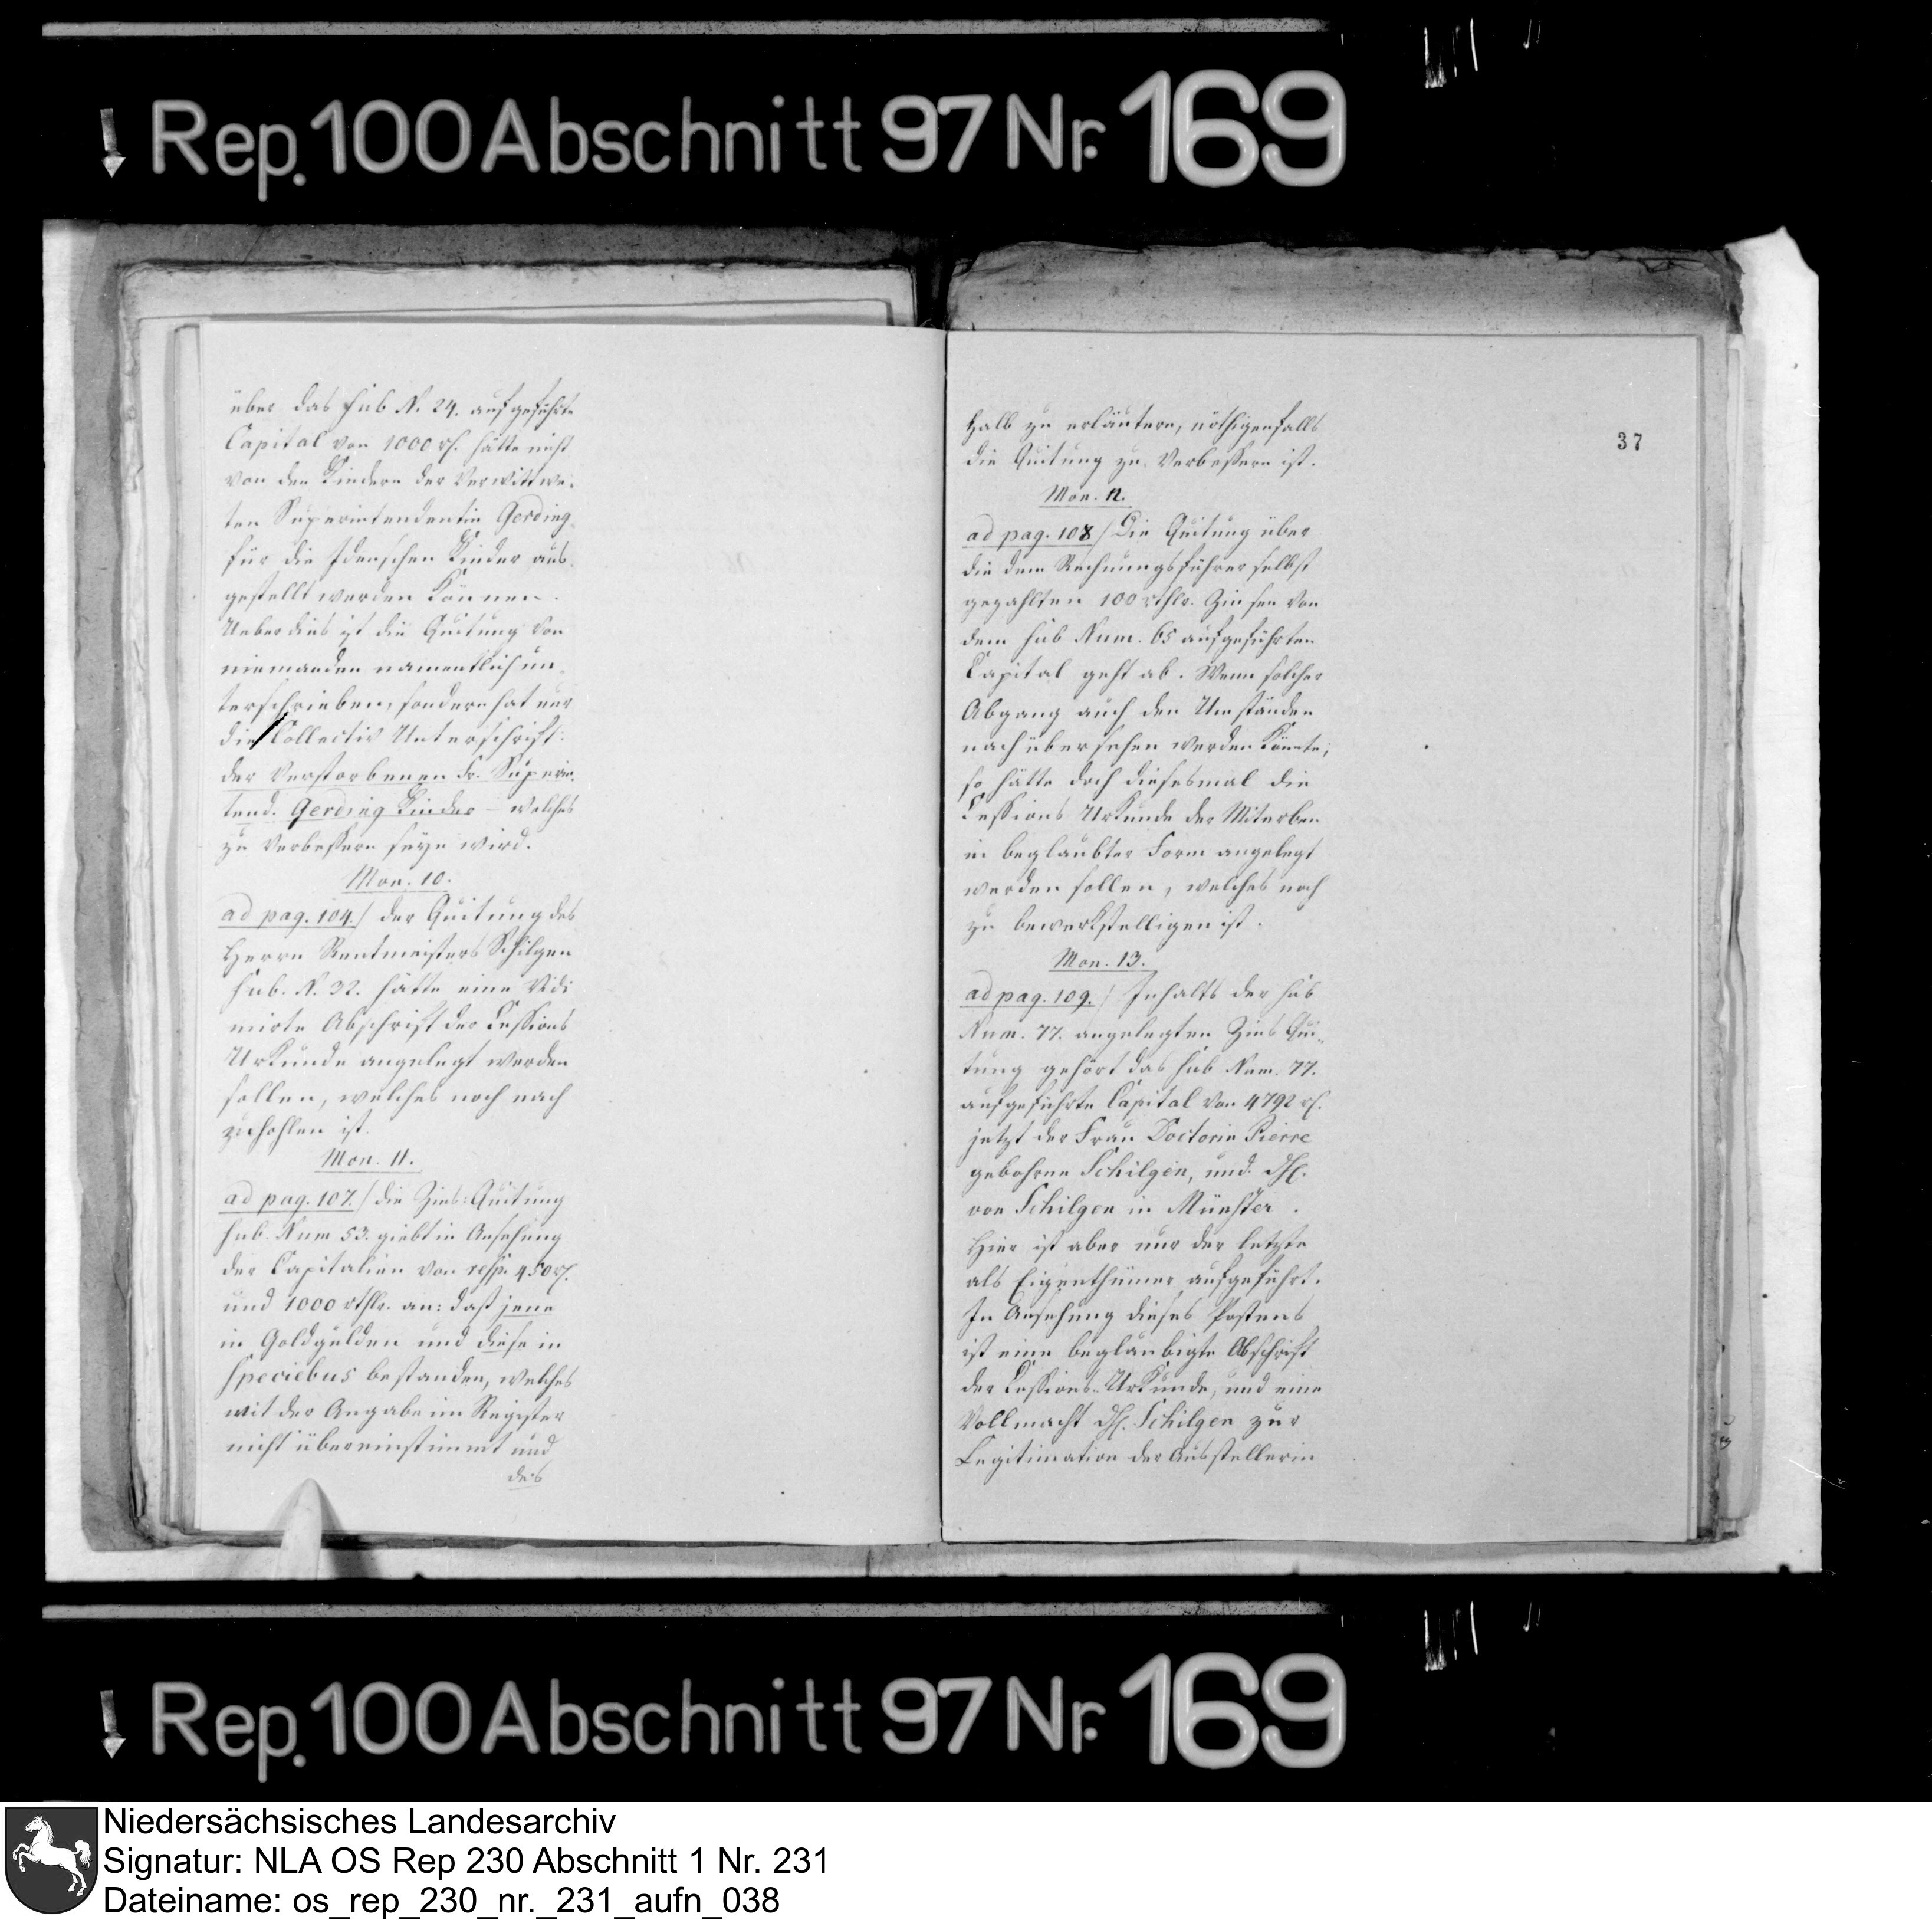 Rep. 100 Abschnitt 97 Nr. 169
über das sub N. 24. aufgeführte
Capital von 1000 rh. hätte nicht
von den Kindern der verwittwe-
ten Superintendentin Gerding
für die Idenschen Kinder aus-
gestellt werden können.
Ueberdies ist die Quitung von
niemanden namentlich un-
terschrieben, sondern hat nur
die Collectiv Unterschrift:
der verstorbenen Fr. Superin-
tend. Gerding Kinder – welches
zu verbeßern seyn wird.
Mon. 10.
ad pag. 104./ der Quitung des
Herrn Rentmeisters Schilgen
sub. N. 32. hätte eine Vidi
mirte Abschrift der Cessions
Urkunde angelegt werden
sollen, welches noch nach
zuhohlen ist.
Mon. 11.
ad pag. 107./ die Zins-Quitung
sub. Num 53. giebt in Ansehung
der Capitalien von resp. 450 rh.
und 1000 rthlr. an: daß jene
in Goldgulden und diese in
Speciebus bestanden, welches
mit der Angabe im Register
nicht übereinstimmt und
des
37
halb zu erläutern, nöthigenfalls
die Quitung zu verbeßern ist.
Mon. 12.
ad pag. 108/ Die Quitung über
die dem Rechnungsführer selbst
gezahlten 100 rthlr. Zinsen von
dem sub Num. 65 aufgeführten
Capital geht ab. Wenn solcher
Abgang auch den Umständen
nach übersehen werden könnte;
so hätte doch diesesmal die
Cessions Urkunde der Miterben
in beglaubter Form angelegt
werden sollen, welches noch
zu bewerkstelligen ist.
Mon. 13.
ad pag. 109./ Inhalts der sub
Num. 77. angelegten Zins Qui-
tung gehört das sub Num. 77.
aufgeführte Capital von 4792 rh.
jetzt der Frau Doctorin Pierre
gebohrne Schilgen, und
von Schilgen in Münster.
Hier ist aber nur der letzte
als Eigenthümer aufgeführt.
In Ansehung dieses Postens
ist eine beglaubigte Abschrift
der Cessions-Urkunde, und eine
Vollmacht Schilgen zur
Legitimation der Ausstellerin
Rep. 100 Abschnitt 97 Nr. 169
Niedersächsisches Landesarchiv
Signatur: NLA OS Rep 230 Abschnitt 1 Nr. 231
Dateiname: os_rep_230_nr._231_aufn_038